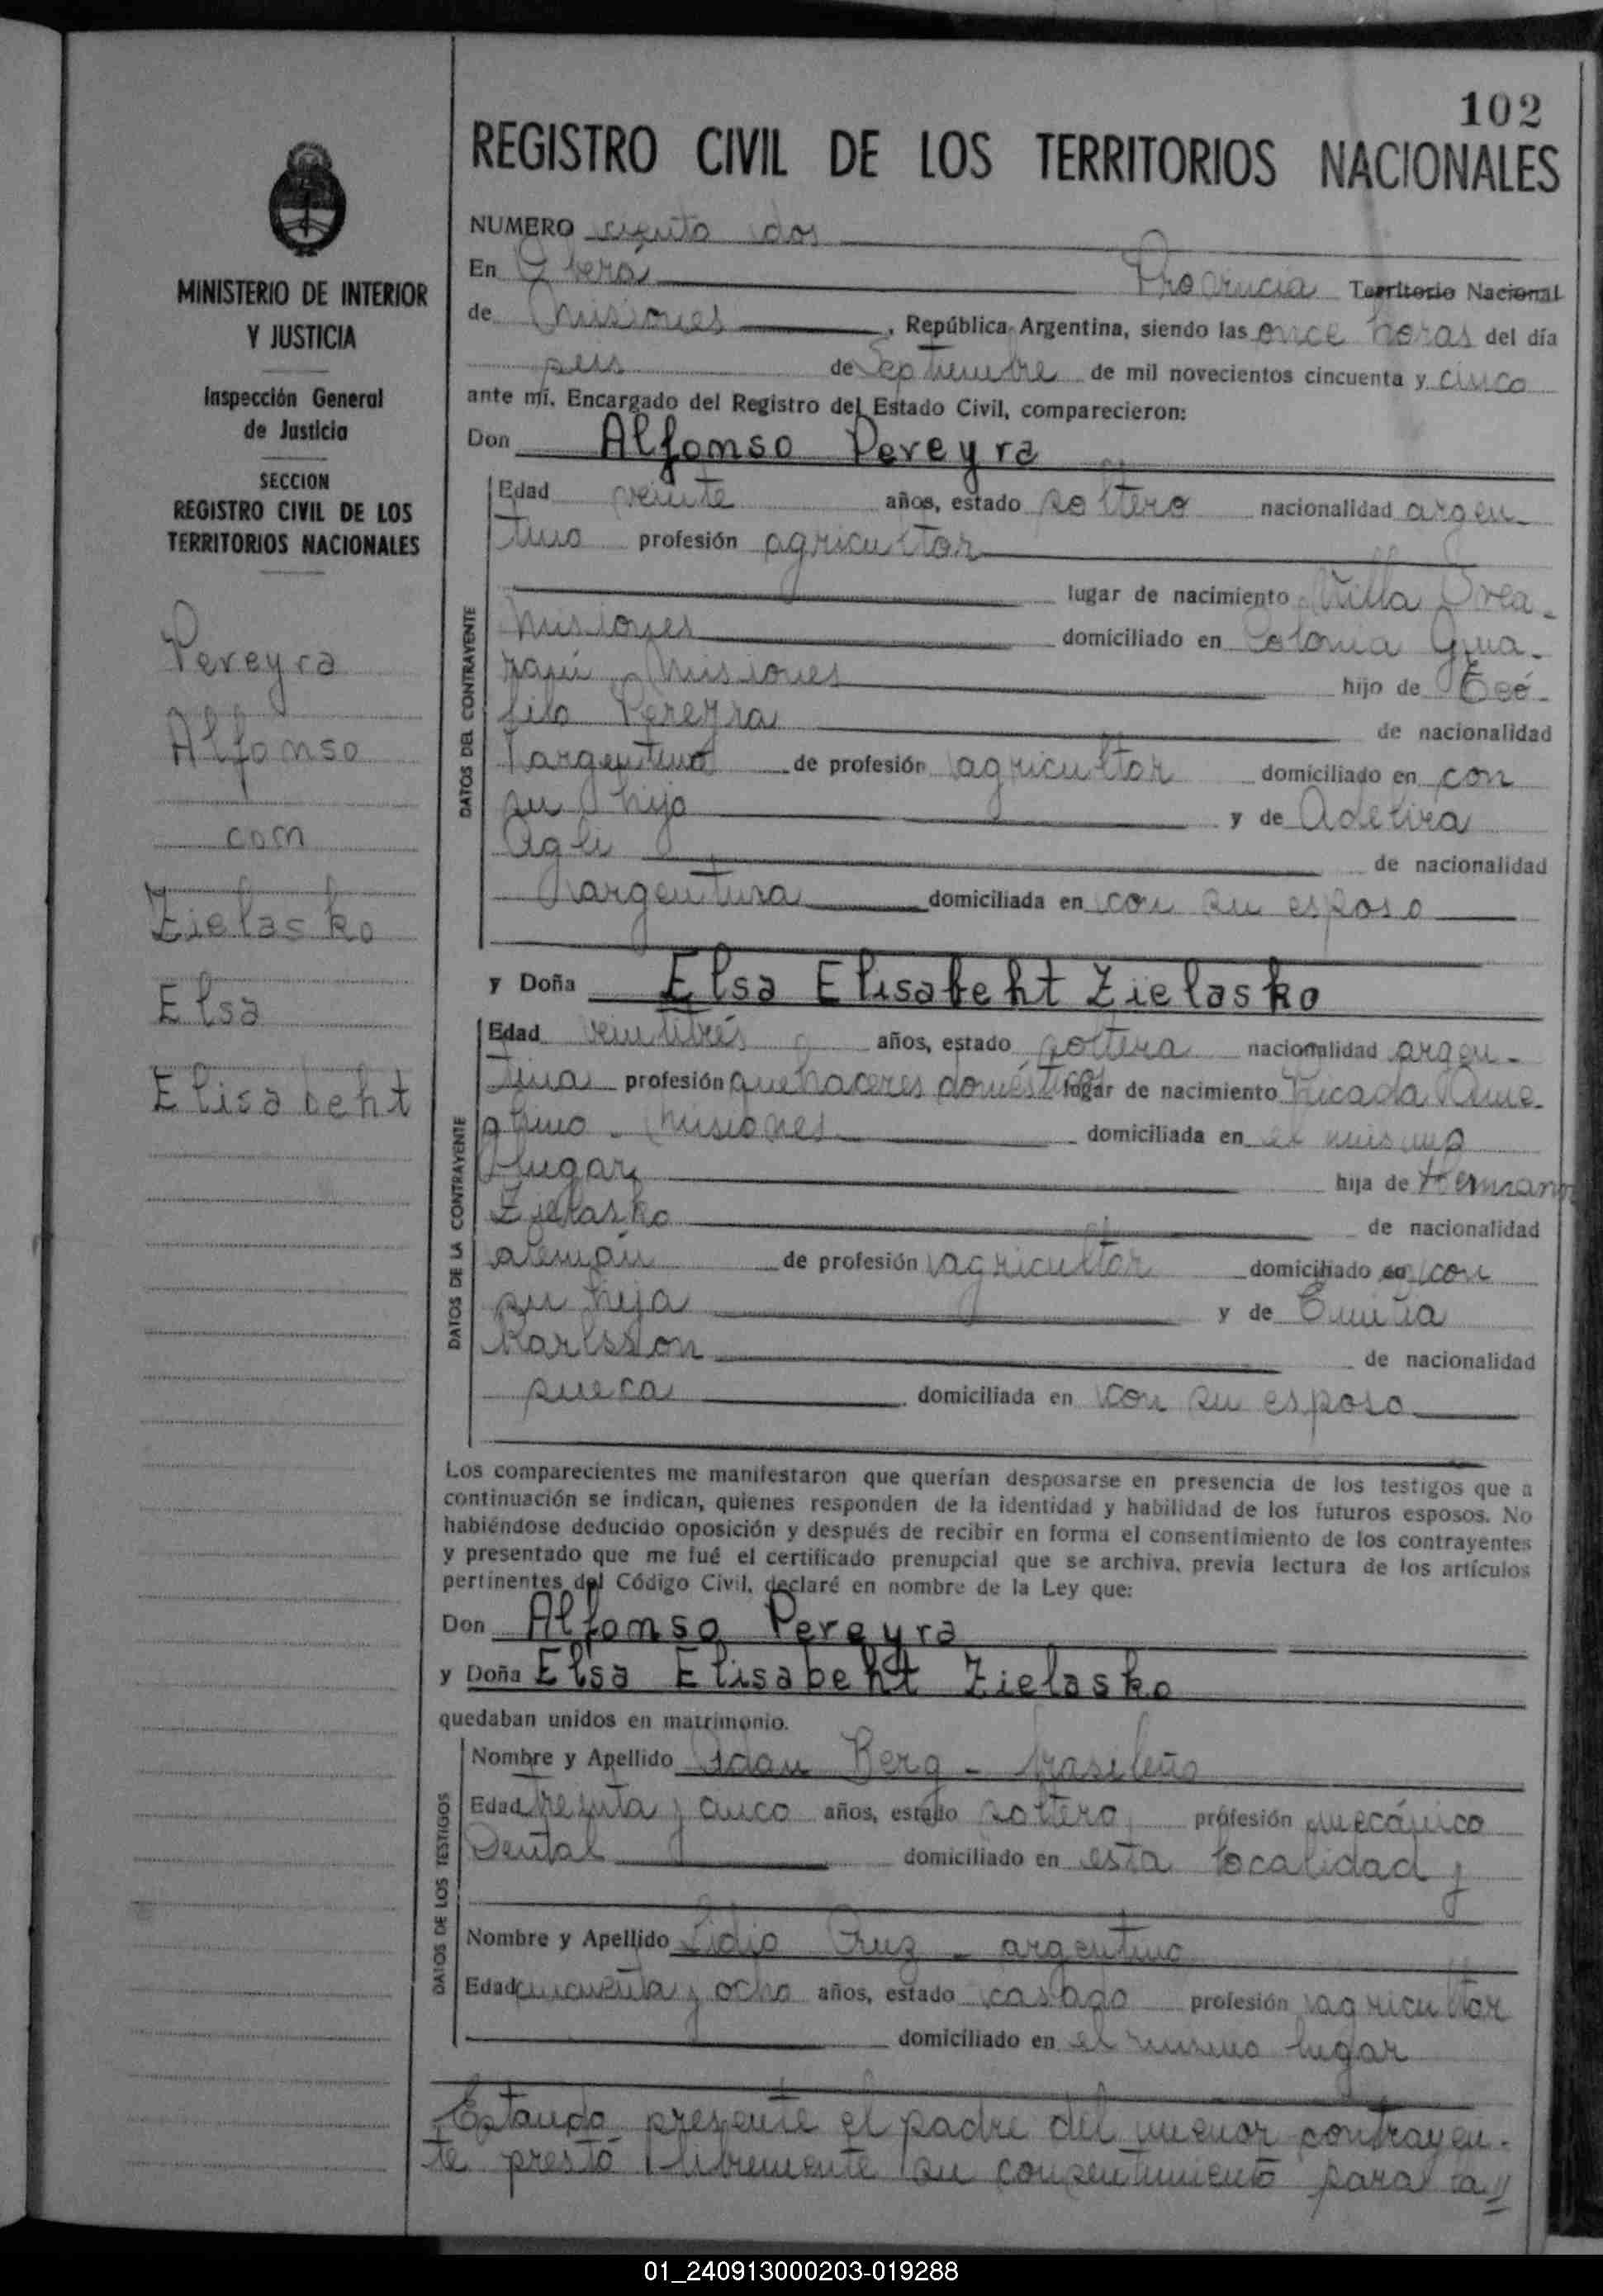 102
REGISTRO CIVIL DE LOS TERRITORIOS NACIONALES
MINISTERIO DE INTERIOR
Y JUSTICIA
Inspección General
de Justicia
SECCION
REGISTRO CIVIL DE LOS
TERRITORIOS NACIONALES
Pereyra
Alfonso
con
Zielasko
Elsa
Elisabeht
NUMERO ciento dos
En Oberá Provincia Territorio Nacional
de Misiones , República Argentina, siendo las once horas del día
seis de Septiembre de mil novecientos cincuenta y cinco
ante mí, Encargado del Registro del Estado Civil, comparecieron:
Don Alfonso Pereyra
DATOS DEL CONTRAYENTE
Edad veinte años, estado soltero nacionalidad argen-
tino profesión agricultor
lugar de nacimiento Villa
Misiones domiciliado en Colonia Gua-
raní - Misiones hijo de Teó-
filo Pereyra de nacionalidad
argentino de profesión agricultor domiciliado en con
su hijo y de
de nacionalidad
argentina domiciliada en con su esposo
y Doña Elsa Elisabeht Zielasko
DATOS DE LA CONTRAYENTE
Edad veintitrés años, estado soltera nacionalidad argen-
tina profesión quehaceres domésticos lugar de nacimiento Picada
Misiones domiciliada en el mismo
lugar hija de Hermann
Zielasko de nacionalidad
alemán de profesión agricultor domiciliado en con
su hija y de Emilia
Karlsson de nacionalidad
sueca domiciliada en con su esposo
Los comparecientes me manifestaron que querían desposarse en presencia de los testigos que a
continuación se indican, quienes responden de la identidad y habilidad de los futuros esposos. No
habiéndose deducido oposición y después de recibir en forma el consentimiento de los contrayentes
y presentado que me fué el certificado prenupcial que se archiva, previa lectura de los artículos
pertinentes del Código Civil, declaré en nombre de la Ley que:
Don Alfonso Pereyra
y Doña Elsa Elisabeht Zielasko
quedaban unidos en matrimonio.
DATOS DE LOS TESTIGOS
Nombre y Apellido Adan Berg - brasileño
Edad treinta y cinco años, estado soltero, profesión mecánico
Dental domiciliado en esta localidad y
Nombre y Apellido Lidio Cruz - argentino
Edad cincuenta y ocho años, estado casado profesión agricultor
domiciliado en el mismo lugar
Estando presente el padre del menor contrayen-
te prestó libremente su consentimiento para la//
01_240913000203-019288